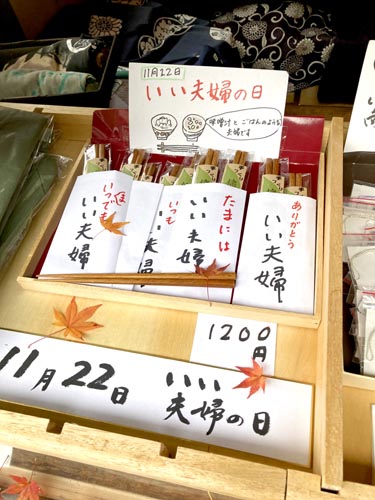 11月22日
いい夫婦の日
味噌汁とごはんのような
夫婦です
いつでも
いい夫婦
いつも
たまには
いい夫婦
ありがとう
いい夫婦
1200
円
11月22日
いい
夫婦の日